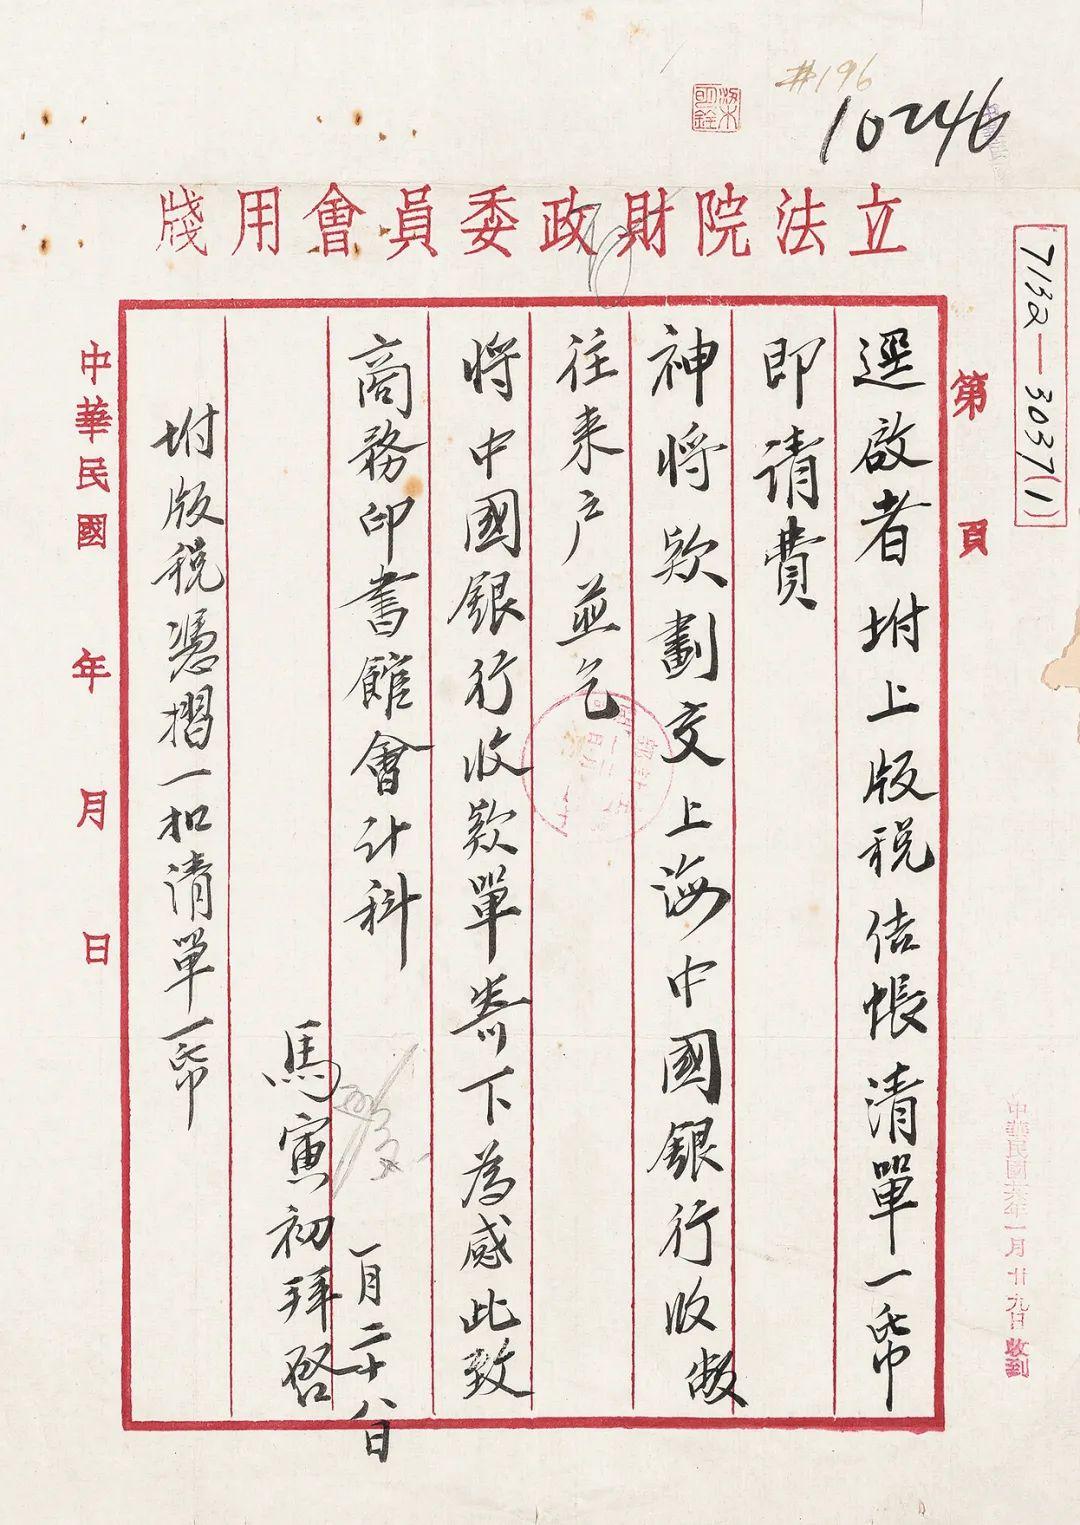 #196
10246
立法院財政委員會用牋
7132－3037(1)
第 頁
逕啟者坿上版税结帳清單一帋
即请費
神將欵劃交上海中國銀行收敝
往来户並乞
將中國銀行收欵單寄下為感此致
商務印書館會计科
一月二十八日
馬寅初拜启
坿版税憑摺一扣清單一帋
中華民國 年 月 日
中華民國 年一月廿九日收到